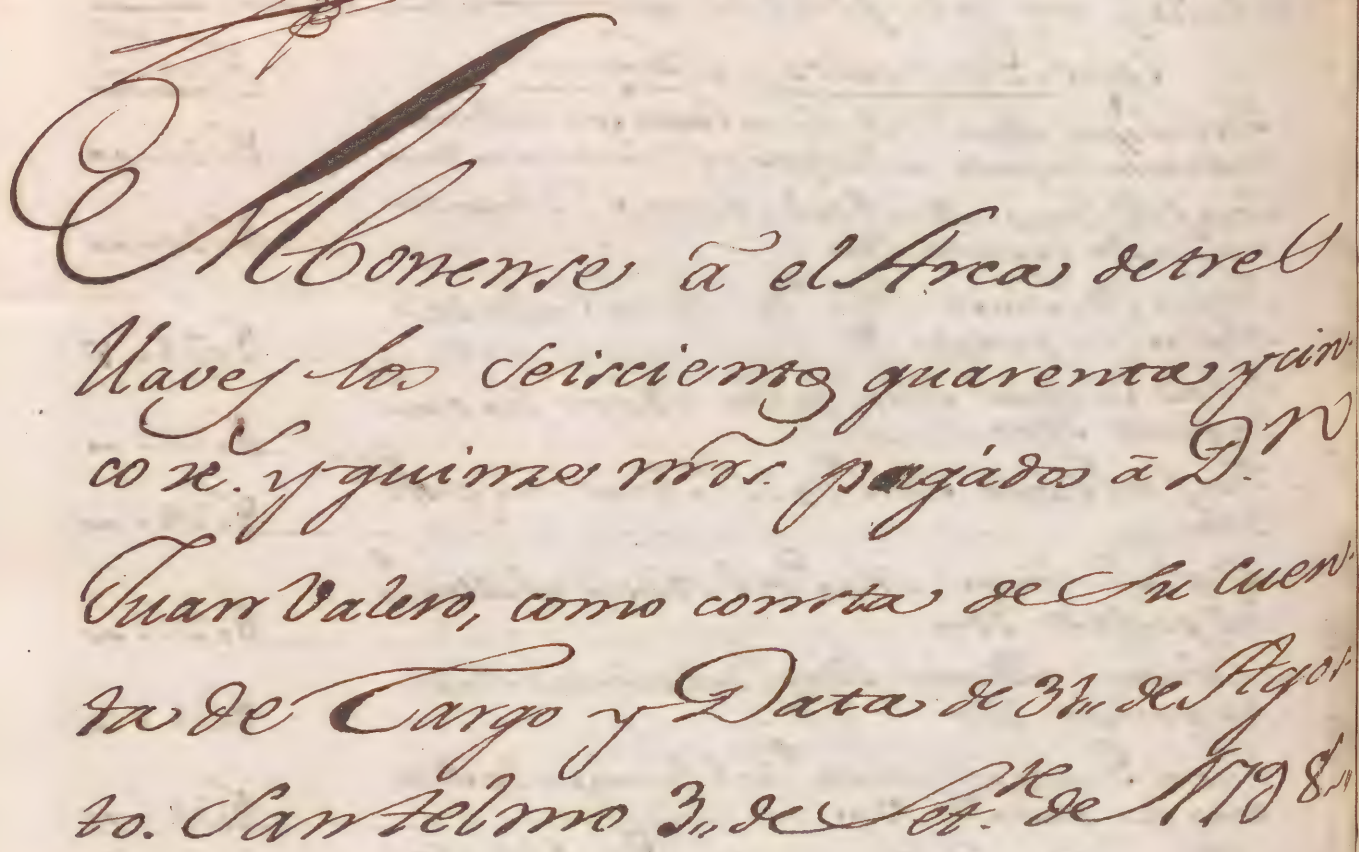 Abonense â el Arca de tres
llaves los Seiscientos quarenta y cin-
co rs. y quinze mrs. pagádos â D.n
Juan Valero, como consta de Su cuen-
ta de Cargo y Data de 31,, de Agos-
to. Santelmo 3,, de Set.re de 1798,,